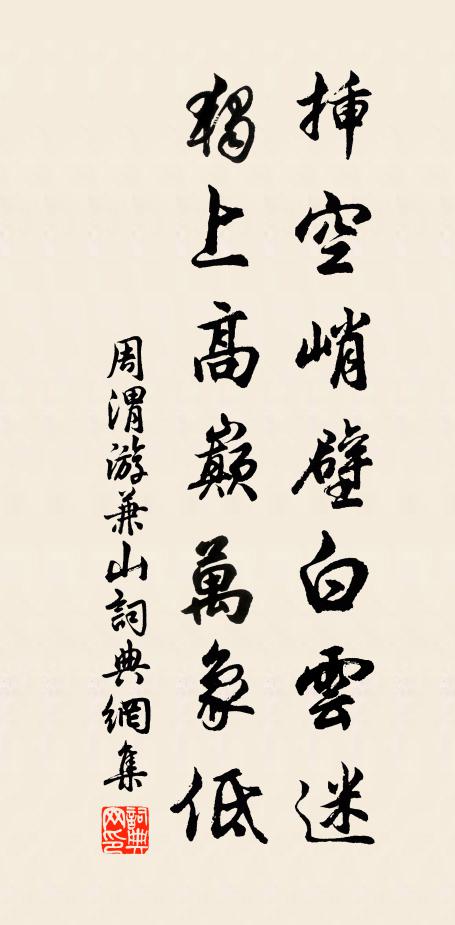 挿空峭壁白雲迷
獨上高巔萬象低
周渭游兼山詞典網集
詞典網印